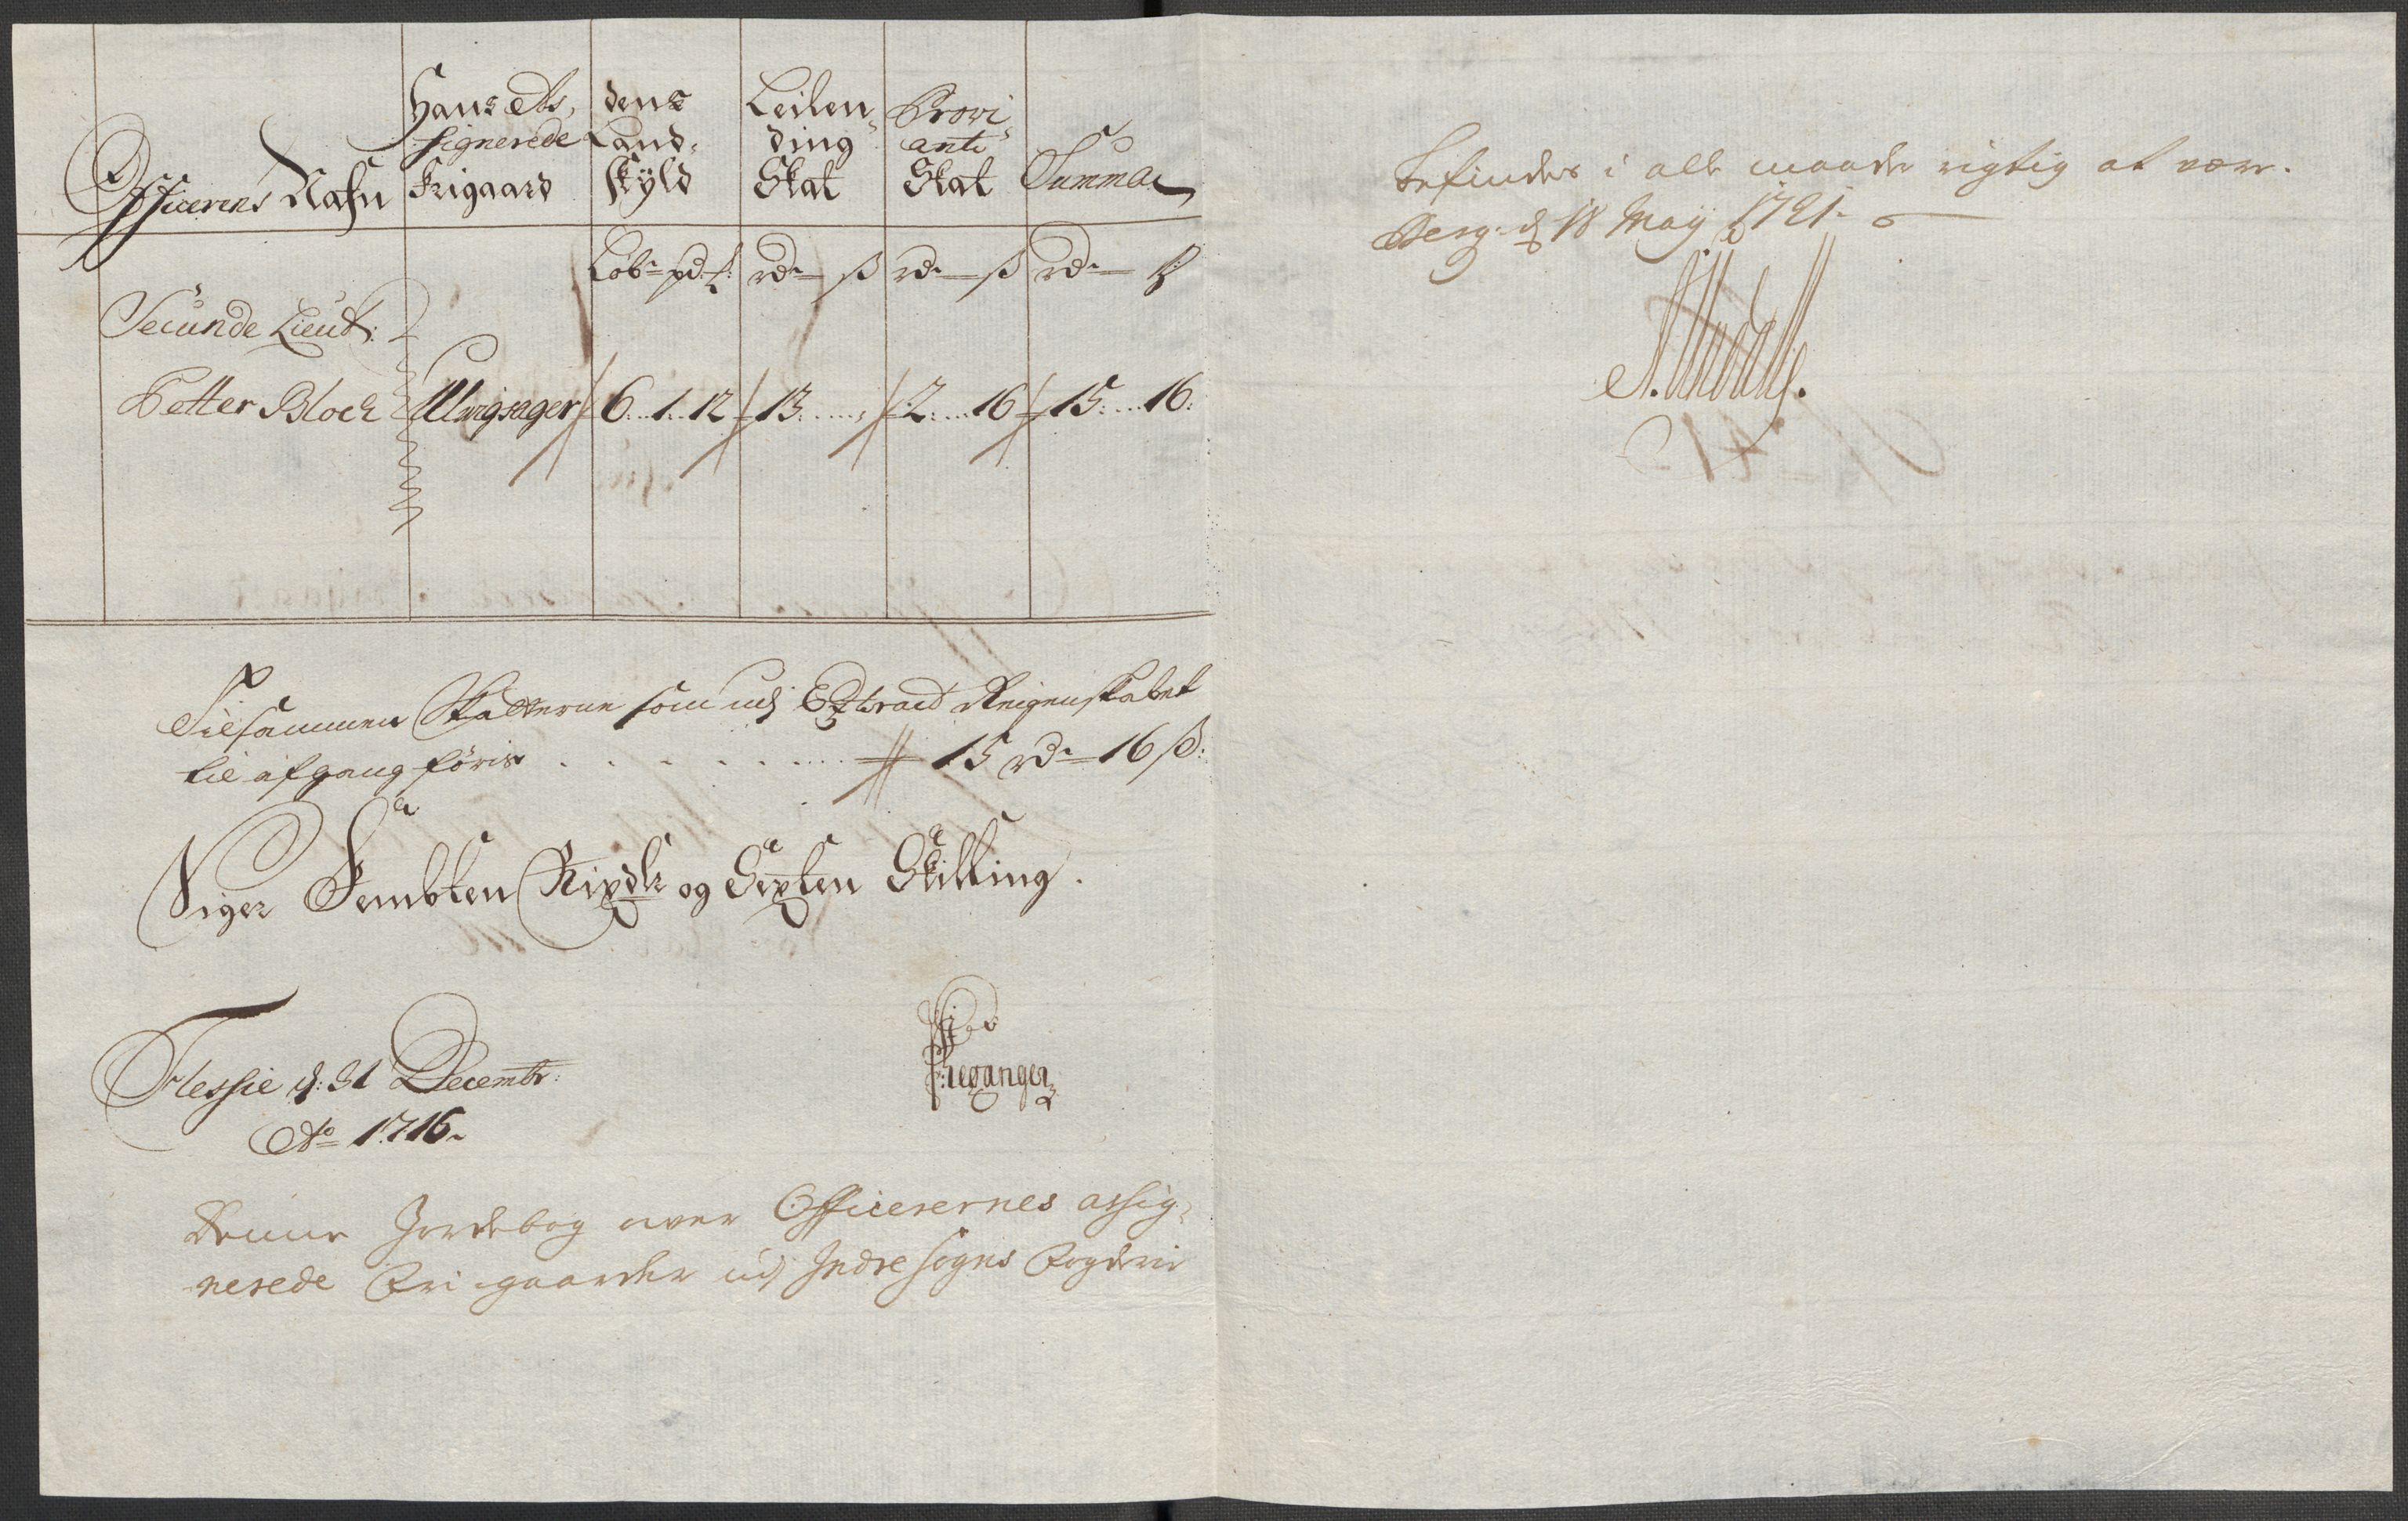 Officerens Nafn
Hans As,
signerede
Frigaard
dens
Land,
skÿld
Leilen,
ding
Skat
Provi,
anti
Skat
Summa
Løb: pd rd: ß rd: ß rd: ß
Secunde Lieut:
Petter Bloch Ulvigsager 6...1..12 13...... 2....16 15....16:
Tilsammen Skatterne som udj Extract Reigenskabet
til afgang føris . . . . . . . 15 rd: 16 ß:
Siger Fembten Rixdlr og Sexten Skilling.
Flessie d: 31 Decembr:
Ao 1716.
Denne Jordebog over Officerernes assig,
nerede Fri-gaarder udj Indre Sogns Fogderie
Befindes i alle maade rigtig at være.
Berg. d 18 Maÿ 1721.